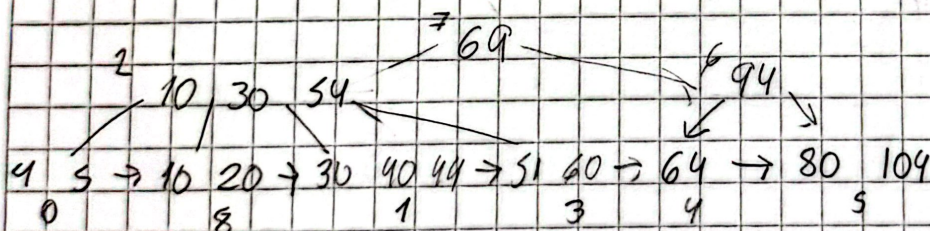 7 69
2 6 94
10 30 54
4 5 → 10 20 → 30 40 44 → 51 60 → 64 → 80 104
0 8 1 3 4 5